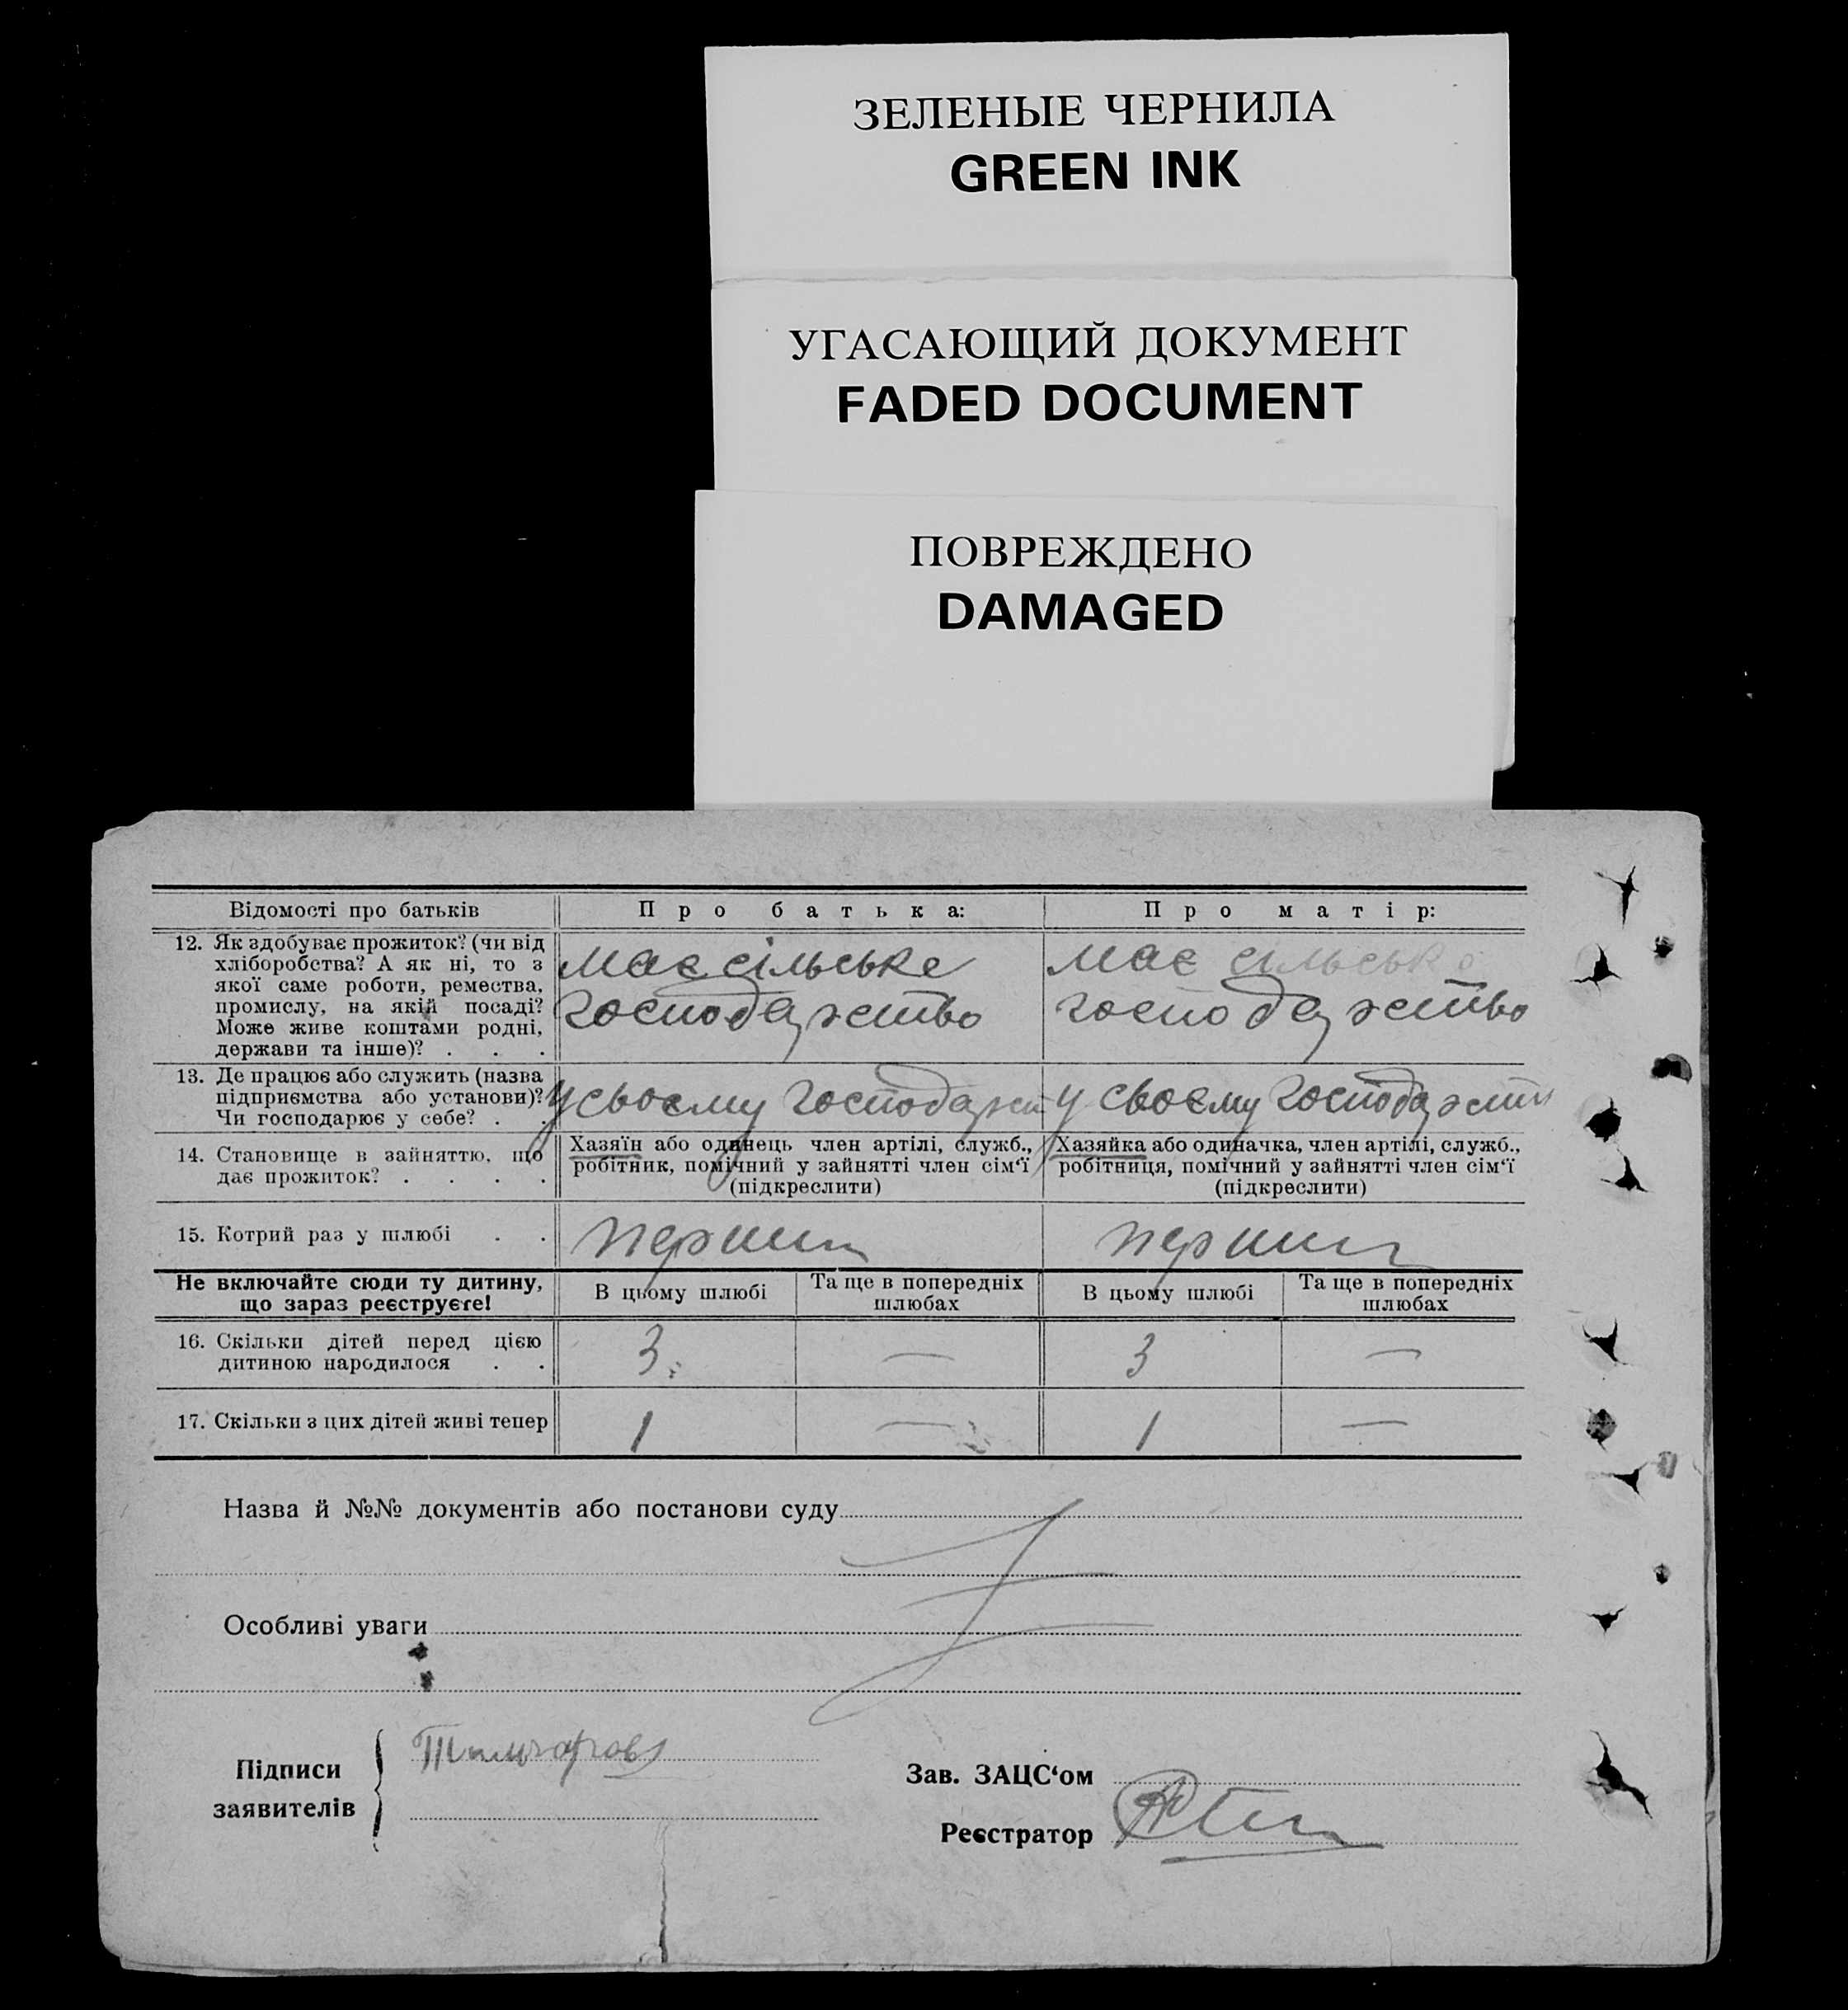 ЗЕЛЕНЫЕ ЧЕРНИЛА
GREEN INK
УГАСАЮЩИЙ ДОКУМЕНТ
FADED DOCUMENT
ПОВРЕЖДЕНО
DAMAGED
Відомості про батьків
Про батька:
Про матір:
12. Як здобуває прожиток? (чи від
хліборобства? А як ні, то з
якої саме роботи, ремества,
промислу, на якій посаді?
Може живе коштами родні,
держави та інше)? . . .
має сільське
господарство
має сільське
господарство
13. Де працює або служить (назва
підприємства або установи)?
Чи господарює у себе? . .
у своєму господарст
у своєму господарстві
14. Становище в зайняттю, що
дає прожиток? . . . .
Хазяїн або одинець член артілі, служб.,
робітник, помічний у зайнятті член сім‘ї
(підкреслити)
Хазяйка або одиначка, член артілі, служб.,
робітниця, помічний у зайнятті член сім‘ї
(підкреслити)
15. Котрий раз у шлюбі . .
перший
перший
Не включайте сюди ту дитину,
що зараз реєструєте!
В цьому шлюбі
Та ще в попередніх
шлюбах
В цьому шлюбі
Та ще в попередніх
шлюбах
16. Скільки дітей перед цією
дитиною народилося . .
3
—
3
—
17. Скільки з цих дітей живі тепер
1
—
1
—
Назва й №№ документів або постанови суду
Особливі уваги
Підписи
заявителів
Зав. ЗАЦС‘ом
Реєстратор